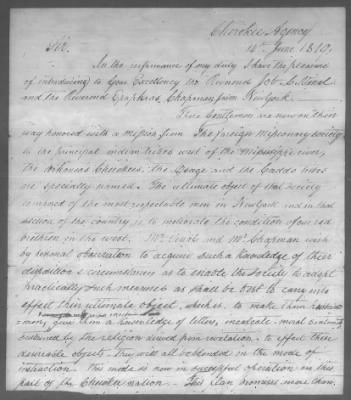 Cherokee Agency
14th June 1818.
Sir.
In the performance of my duty I have the pleasure
of introducing to your Excellency the Reverend Job
and the Reverend Epaphras Chapman from New York.
These Gentlemen are now on their
way honored with a mission from The foreign Missionary society
to the principal indian tribes west of the Mississippi river,
the Arkansas Cherokees, the Osage and the Caddo tribes
are specially named. The ultimate object of that society
composed of the most respectable men in New York and in that
section of the country, is to meliorate the condition of our red
brethren in the west. Mr. and Mr. Chapman wish
by personal observation to acquire such a knowledge of their
disposition & circumstances as to enable the Society to adapt
practically such measures as shall be best to carry into
effect their ultimate object, which is, to make them
give them a knowledge of letters, inculcate moral
by the religion derived from revelation. to effect these
desirable objects. They will all be blended in the mode of
instruction. This mode is now in successful operation in this
part of the Cherokee nation. This plan promises more than